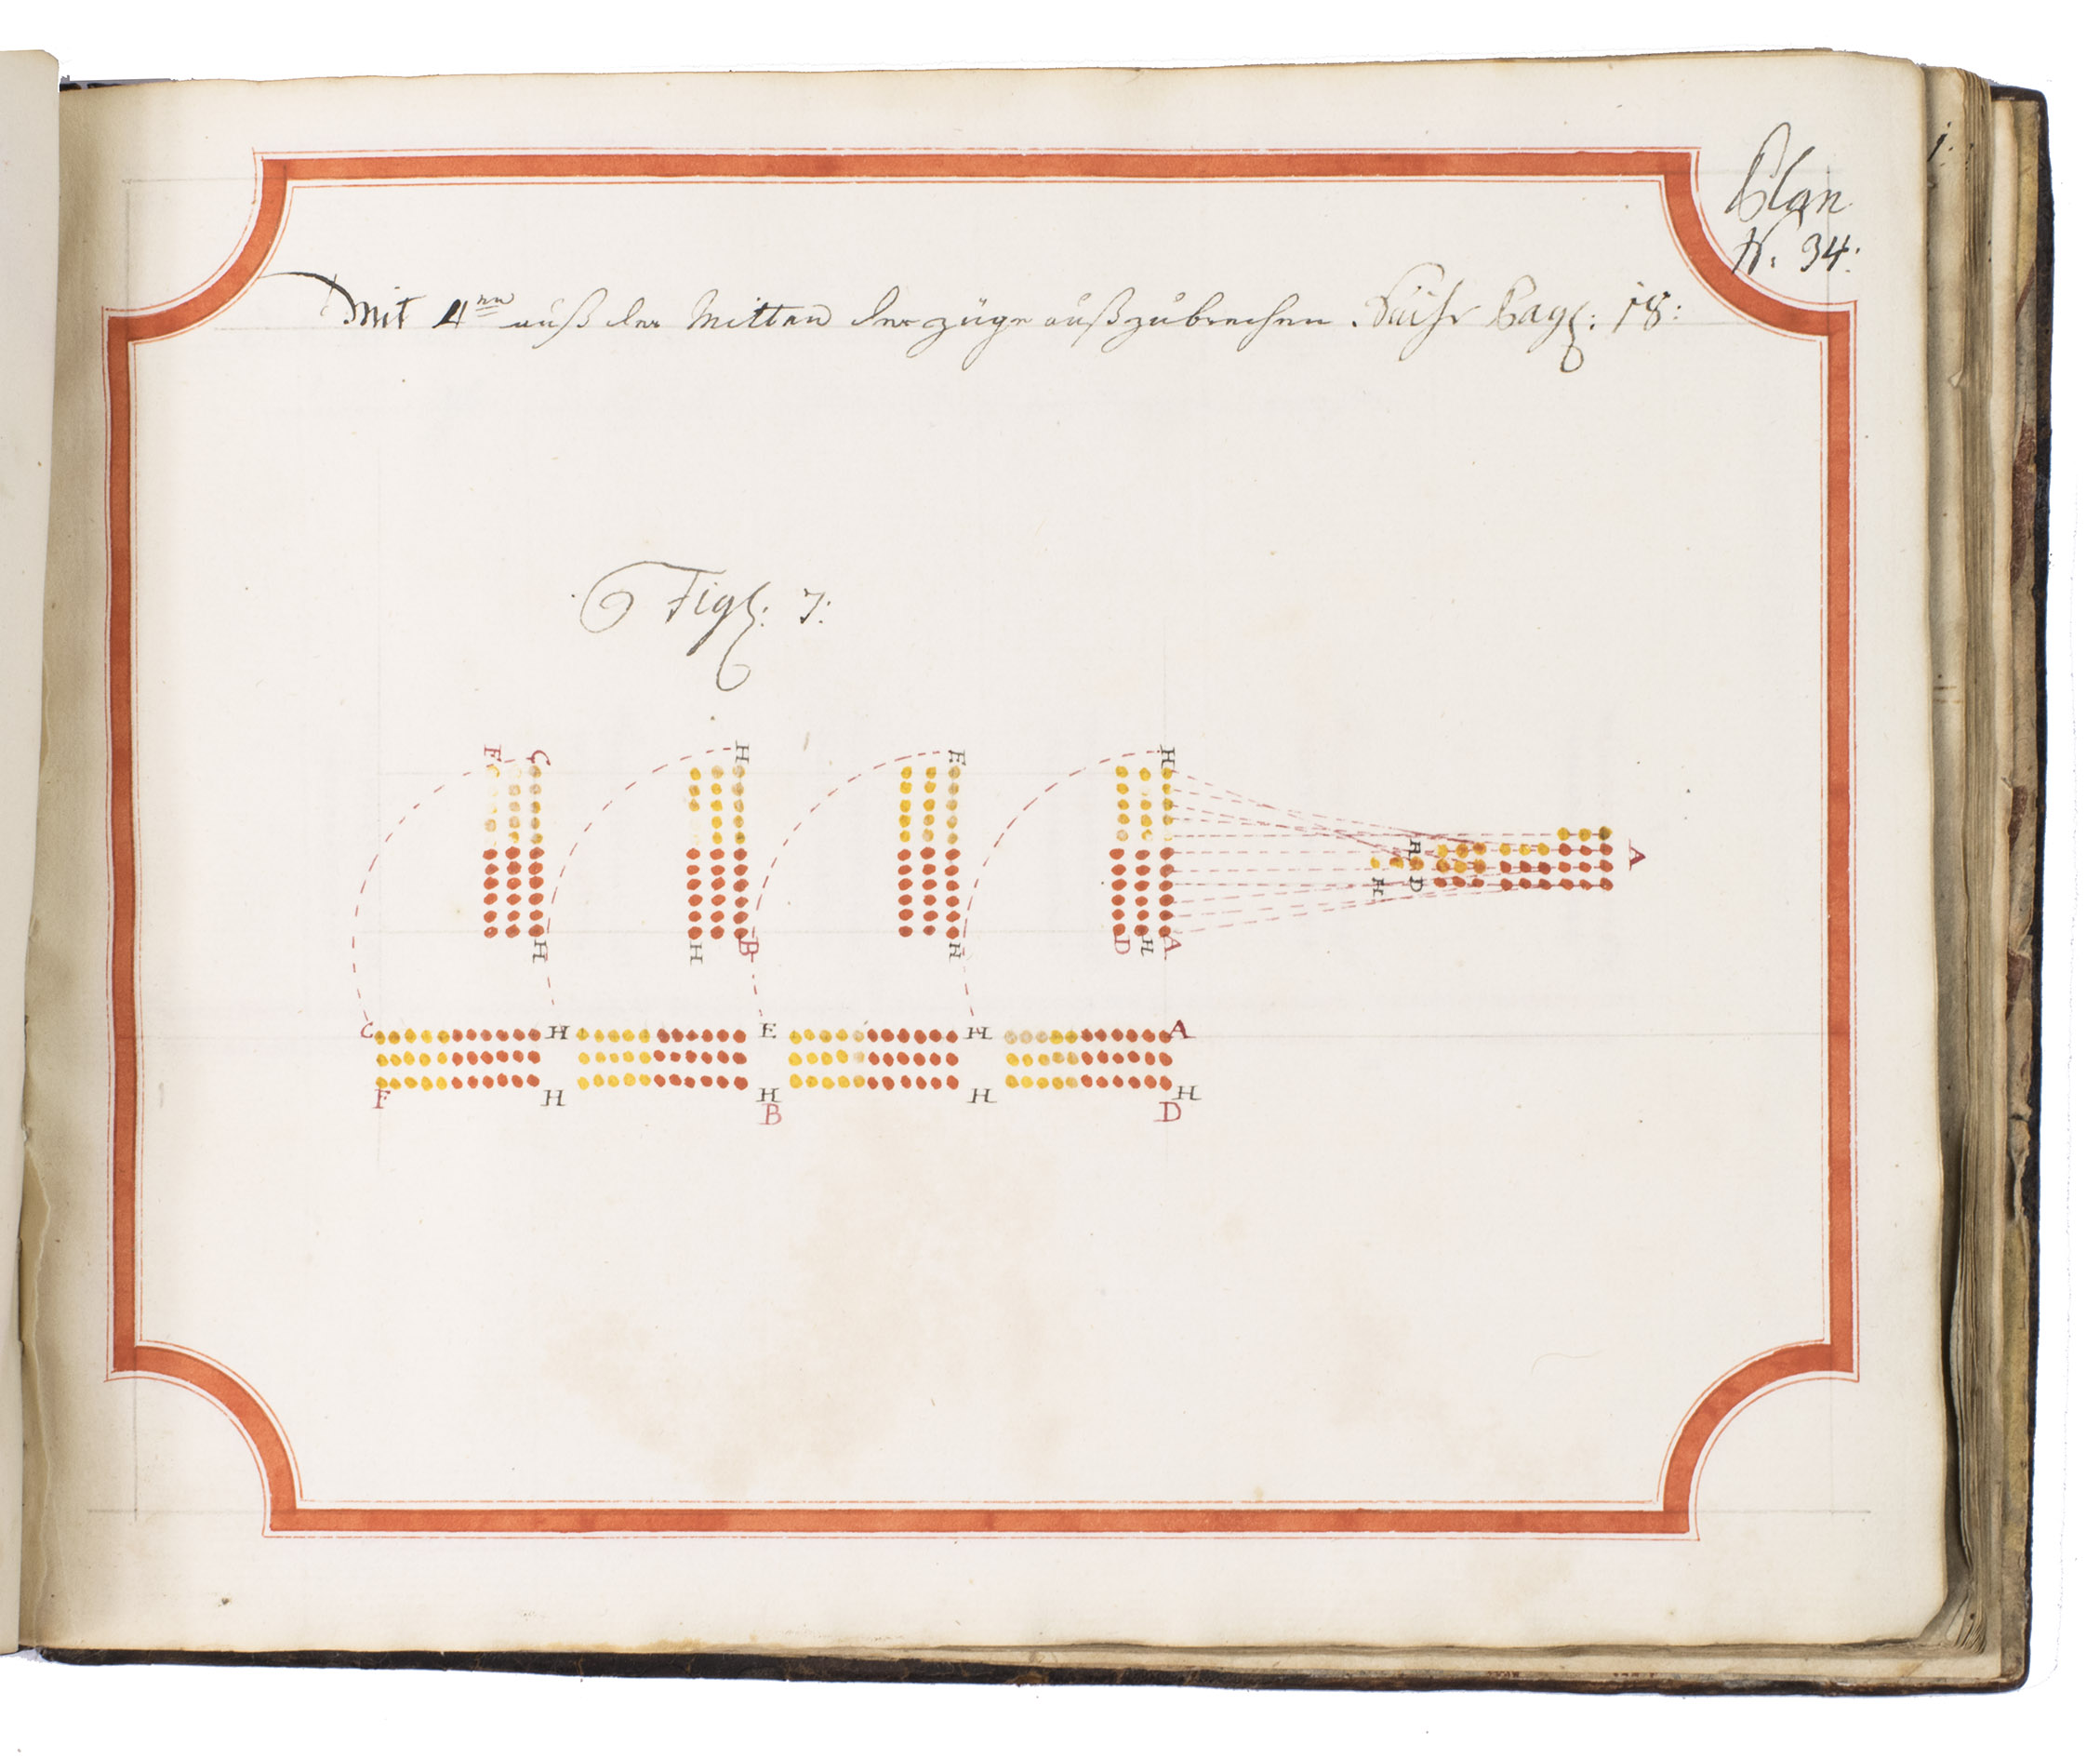 Plan
N: 34:
Mit 4nn auß der Mitten der züge außzubrechen. Siehe Pag: 18:
Fig: 7:
F C H E H
H H B H D H A
A H D H
A
C H E H A
F H H H H
B D